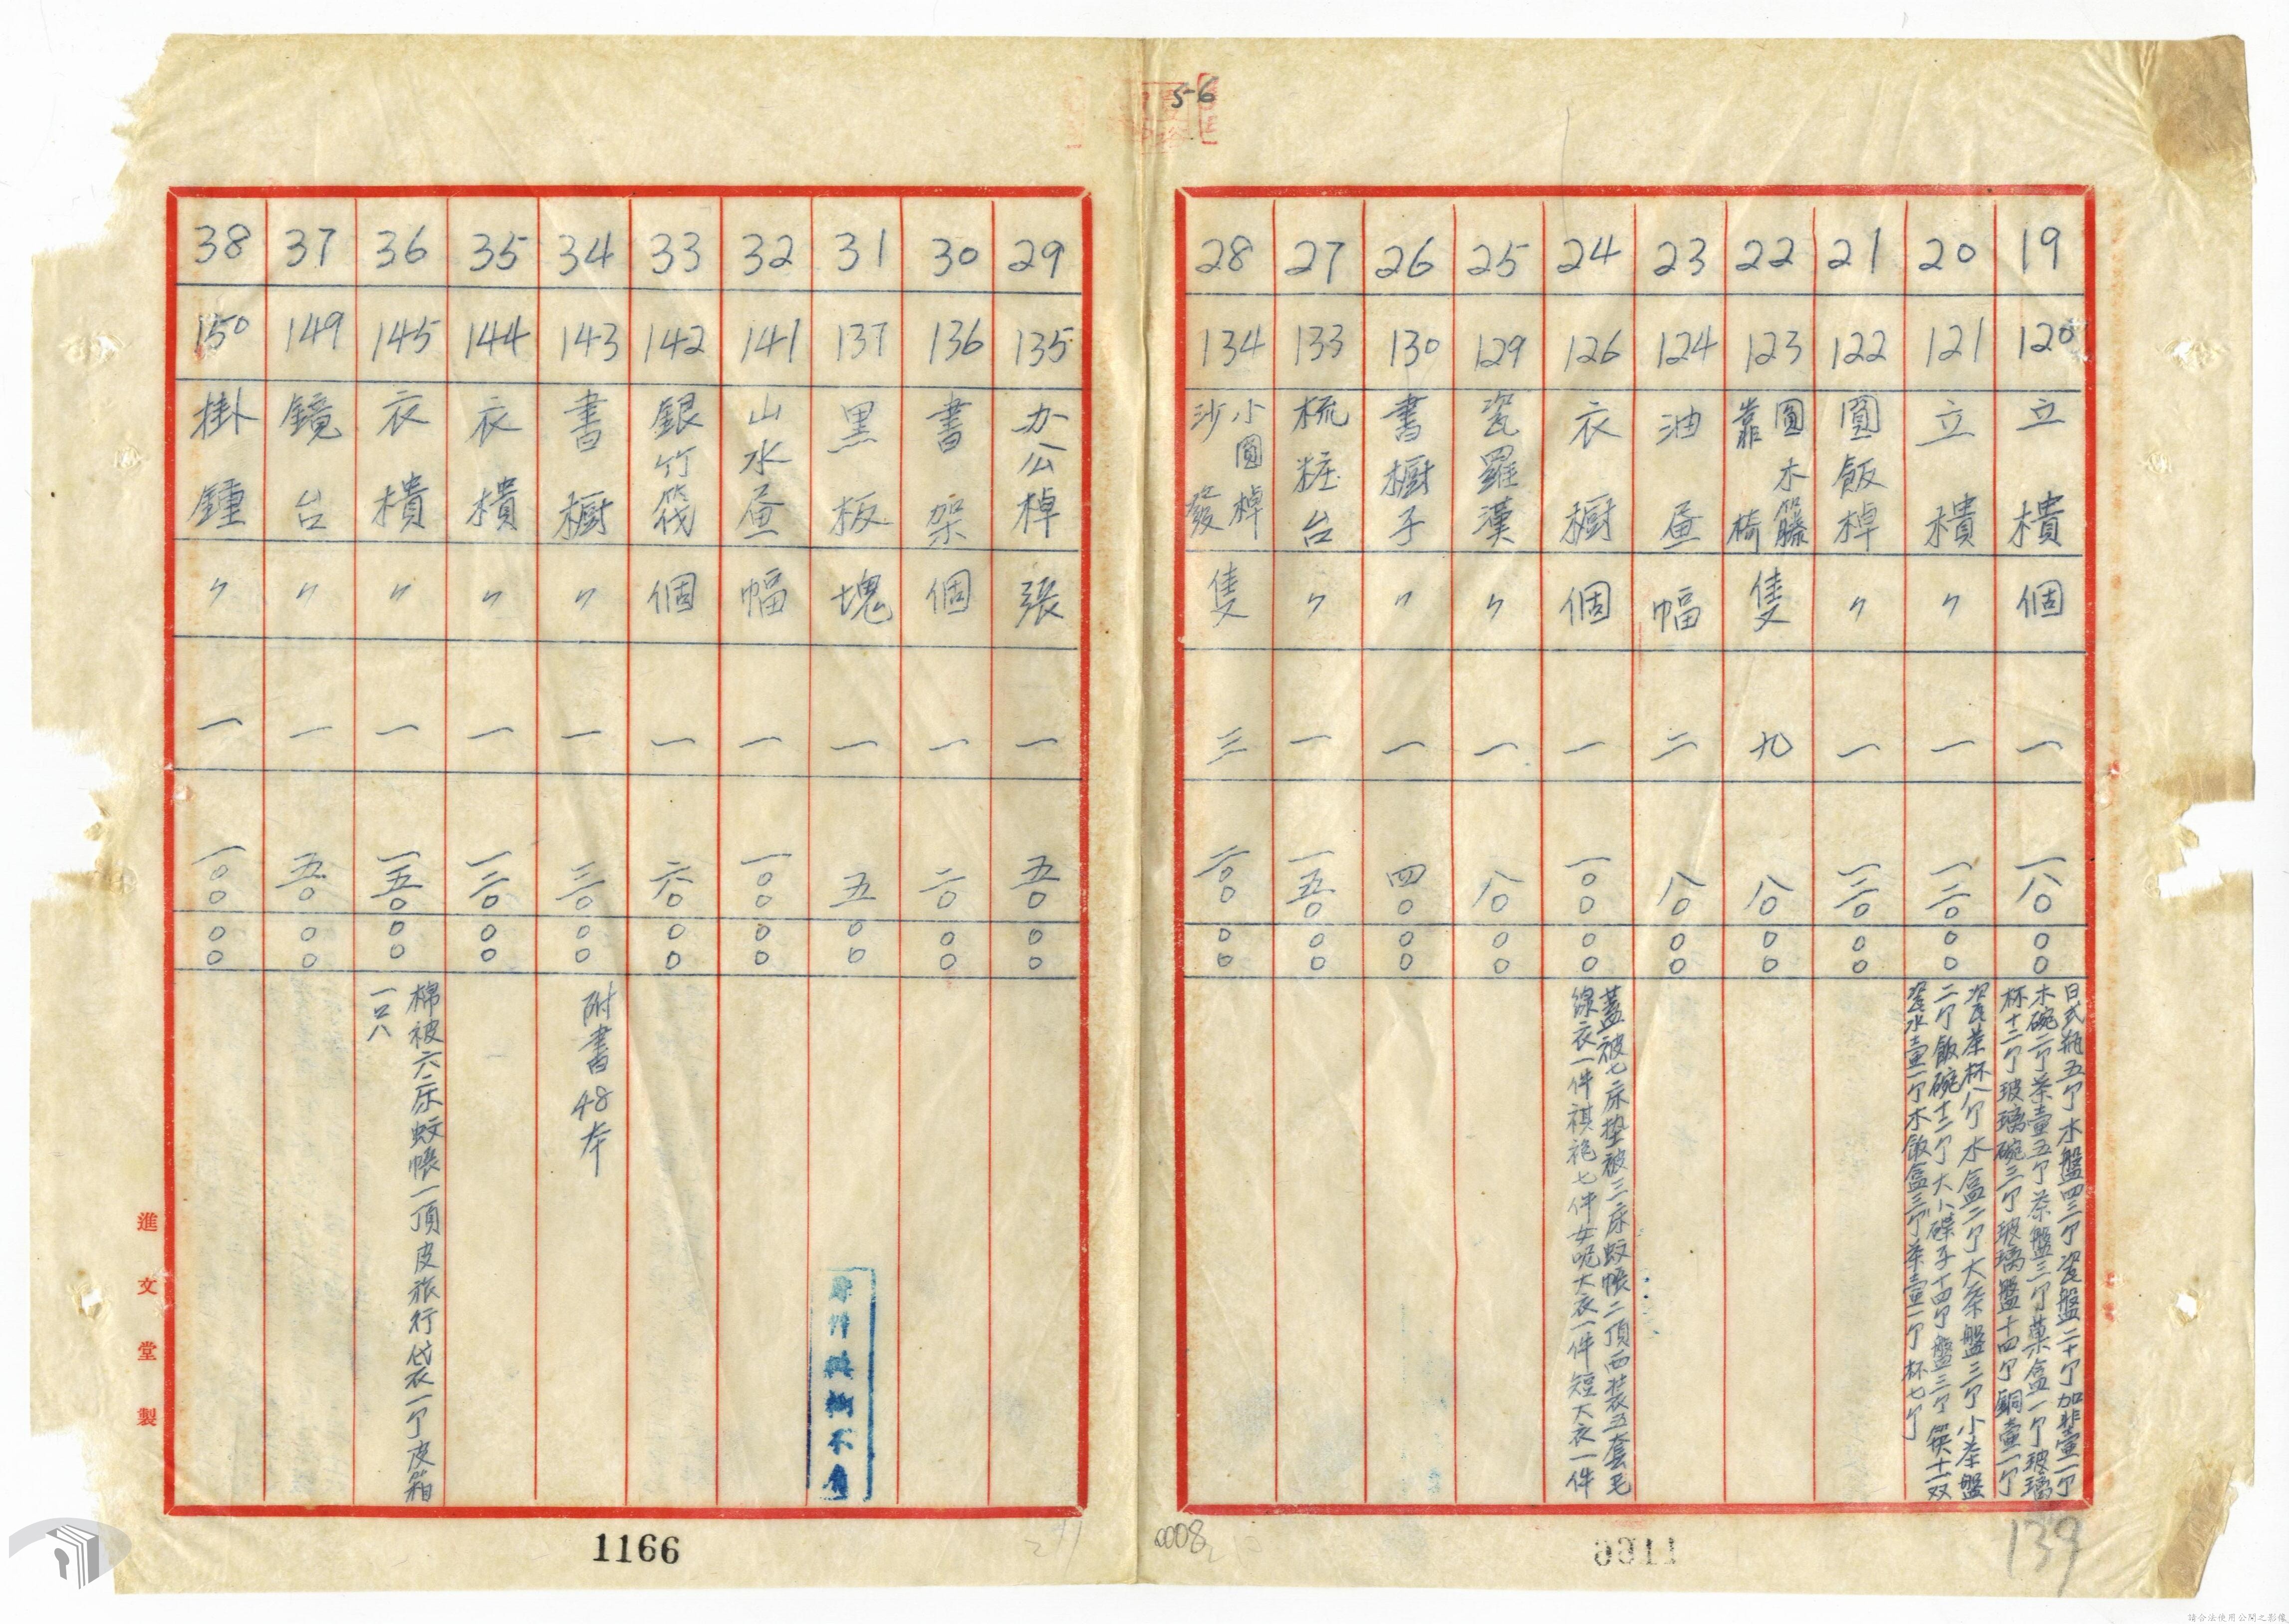 56
19 120 立樻 個 一 一八〇 〇〇
日式瓶五个水盤四三个瓷盤二十个加非壷一个
木碗二个茶壷五个茶盤三个菓盒一个玻璃
杯十二个玻璃碗三个玻璃盤十四个銅壷一个
20 121 立樻 〃 一 一二〇 〇〇
瓷茶杯八个水盒二个大茶盤三个小茶盤
二个飯碗十二个大小碟子十四个盤三个筷十一双
瓷水壷一个木飯盒三个茶壷一个杯七个
21 122 圓飯棹 〃 一 一二〇 〇〇
22 123 圓木籐靠椅 隻 九 八〇 〇〇
23 124 油畫 幅 二 八〇 〇〇
24 126 衣櫥 個 一 一〇〇 〇〇
蓋被七床墊被三床蚊帳二頂西装五套毛
線衣一件祺袍七件女呢大衣一件短大衣一件
25 129 瓷羅漢 〃 一 八〇 〇〇
26 130 書櫥子 〃 一 四〇 〇〇
27 133 梳粧台 〃 一 一五〇 〇〇
28 134 小圓棹沙發 隻 三 二〇〇 〇〇
29 135 办公棹 張 一 五〇 〇〇
30 136 書架 個 一 二〇 〇〇
31 137 黑板 塊 一 五 〇〇
32 141 山水畫 幅 一 一〇〇 〇〇
33 142 銀竹筏 個 一 六〇 〇〇
34 143 書櫥 〃 一 三〇 〇〇
附書48本
35 144 衣樻 〃 一 一三〇 〇〇
36 145 衣樻 〃 一 一五〇 〇〇
棉被六床蚊帳一頂皮旅行袋一个皮箱
一口八
37 149 鏡台 〃 一 五〇 〇〇
38 150 掛鍾 〃 一 一〇〇 〇〇
進文堂製
1166
0008
1166
139
請合法使用公開之影像